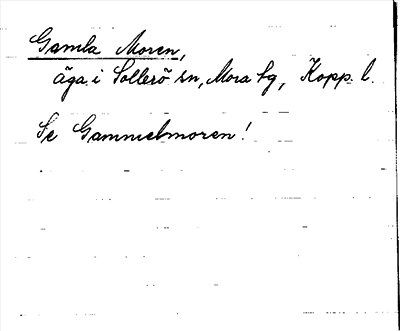 Gamla Moren,
äga i Sollerö sn, Mora tg, Kopp. l.
Se Gammelmoren!